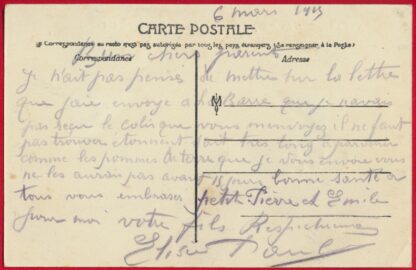 6 mars 1915
CARTE POSTALE
(La Correspondance au recto n'est pas autorisée par tous les pays étrangers (Se renseigner à la Poste)
Correspondance
Adresse
chers parents
Je n'ait pas pensé a mettre sur la lettre
que jaie envoyé a Barra que je navais
pas reçu le colis que vous menvoyez il ne faut
pas trouver etonnent sait tres long a parvenir
comme les pommes de terre que je vous envoie vous
ne les aurais pas avant 15 jour bonne santé a
tous vous embrasser petit Pierre et Emile
pour moi votre fils Respectueux